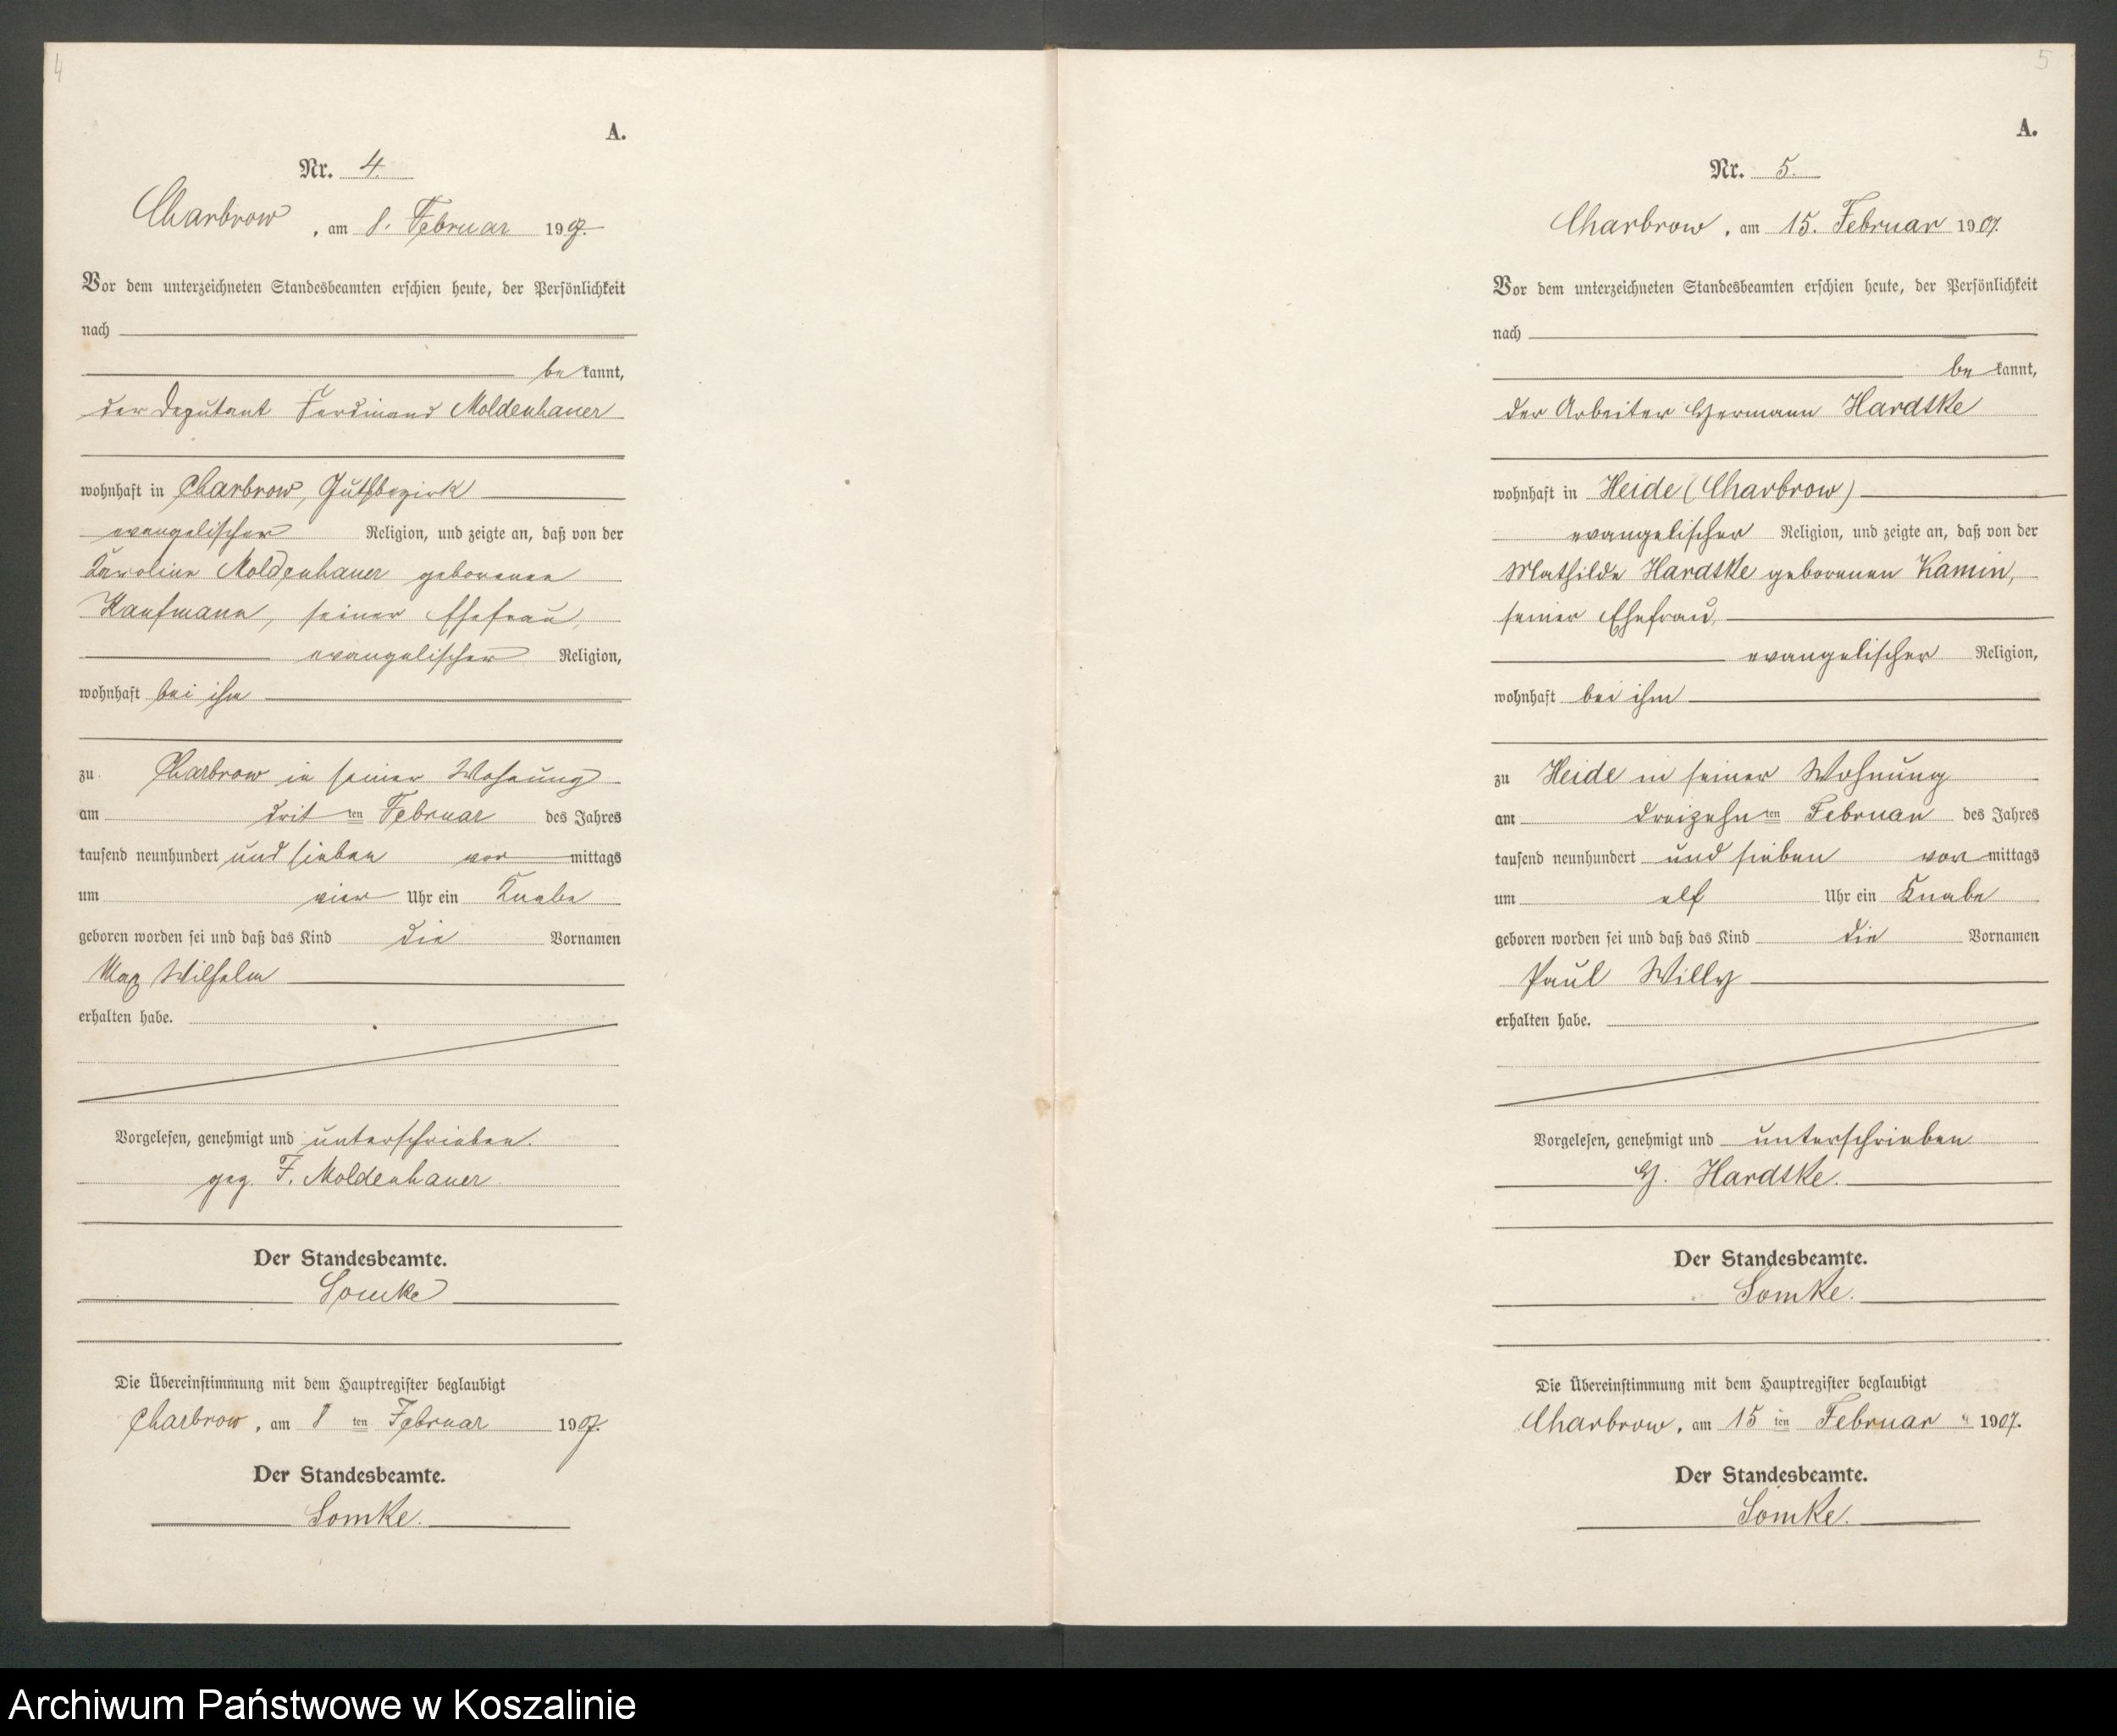 4
A.
Nr. 4.
Charbrow, am 8. Februar 1907.
Vor dem unterzeichneten Standesbeamten erschien heute, der Persönlichkeit
nach
bekannt,
der Deputant Ferdinand Moldenhauer
wohnhaft in Charbrow, Gutsbezirk
evangelischer Religion, und zeigte an, daß von der
Karoline Moldenhauer geborenen
Kaufmann, seiner Ehefrau,
evangelischer Religion,
wohnhaft bei ihm
zu Charbrow in seiner Wohnung
am dritten Februar des Jahres
tausend neunhundert und sieben vormittags
um vier Uhr ein Knabe
geboren worden sei und daß das Kind die Vornamen
Max Wilhelm
erhalten habe.
Vorgelesen, genehmigt und unterschrieben.
gez. F. Moldenhauer
Der Standesbeamte.
Somke
Die Übereinstimmung mit dem Hauptregister beglaubigt
Charbrow, am 8ten Februar 1907.
Der Standesbeamte.
Somke.
5
A.
Nr. 5.
Charbrow, am 15. Februar 1907.
Vor dem unterzeichneten Standesbeamten erschien heute, der Persönlichkeit
nach
bekannt,
der Arbeiter Hermann Hardtke
wohnhaft in Heide (Charbrow)
evangelischer Religion, und zeigte an, daß von der
Mathilde Hardtke geborenen Kamin,
seiner Ehefrau,
evangelischer Religion,
wohnhaft bei ihm
zu Heide in seiner Wohnung
am dreizehnten Februar des Jahres
tausend neunhundert und sieben vormittags
um elf Uhr ein Knabe
geboren worden sei und daß das Kind die Vornamen
Paul Willy
erhalten habe.
Vorgelesen, genehmigt und unterschrieben
H. Hardtke.
Der Standesbeamte.
Somke.
Die Übereinstimmung mit dem Hauptregister beglaubigt
Charbrow, am 15ten Februar 1907.
Der Standesbeamte.
Somke.
Archiwum Państwowe w Koszalinie